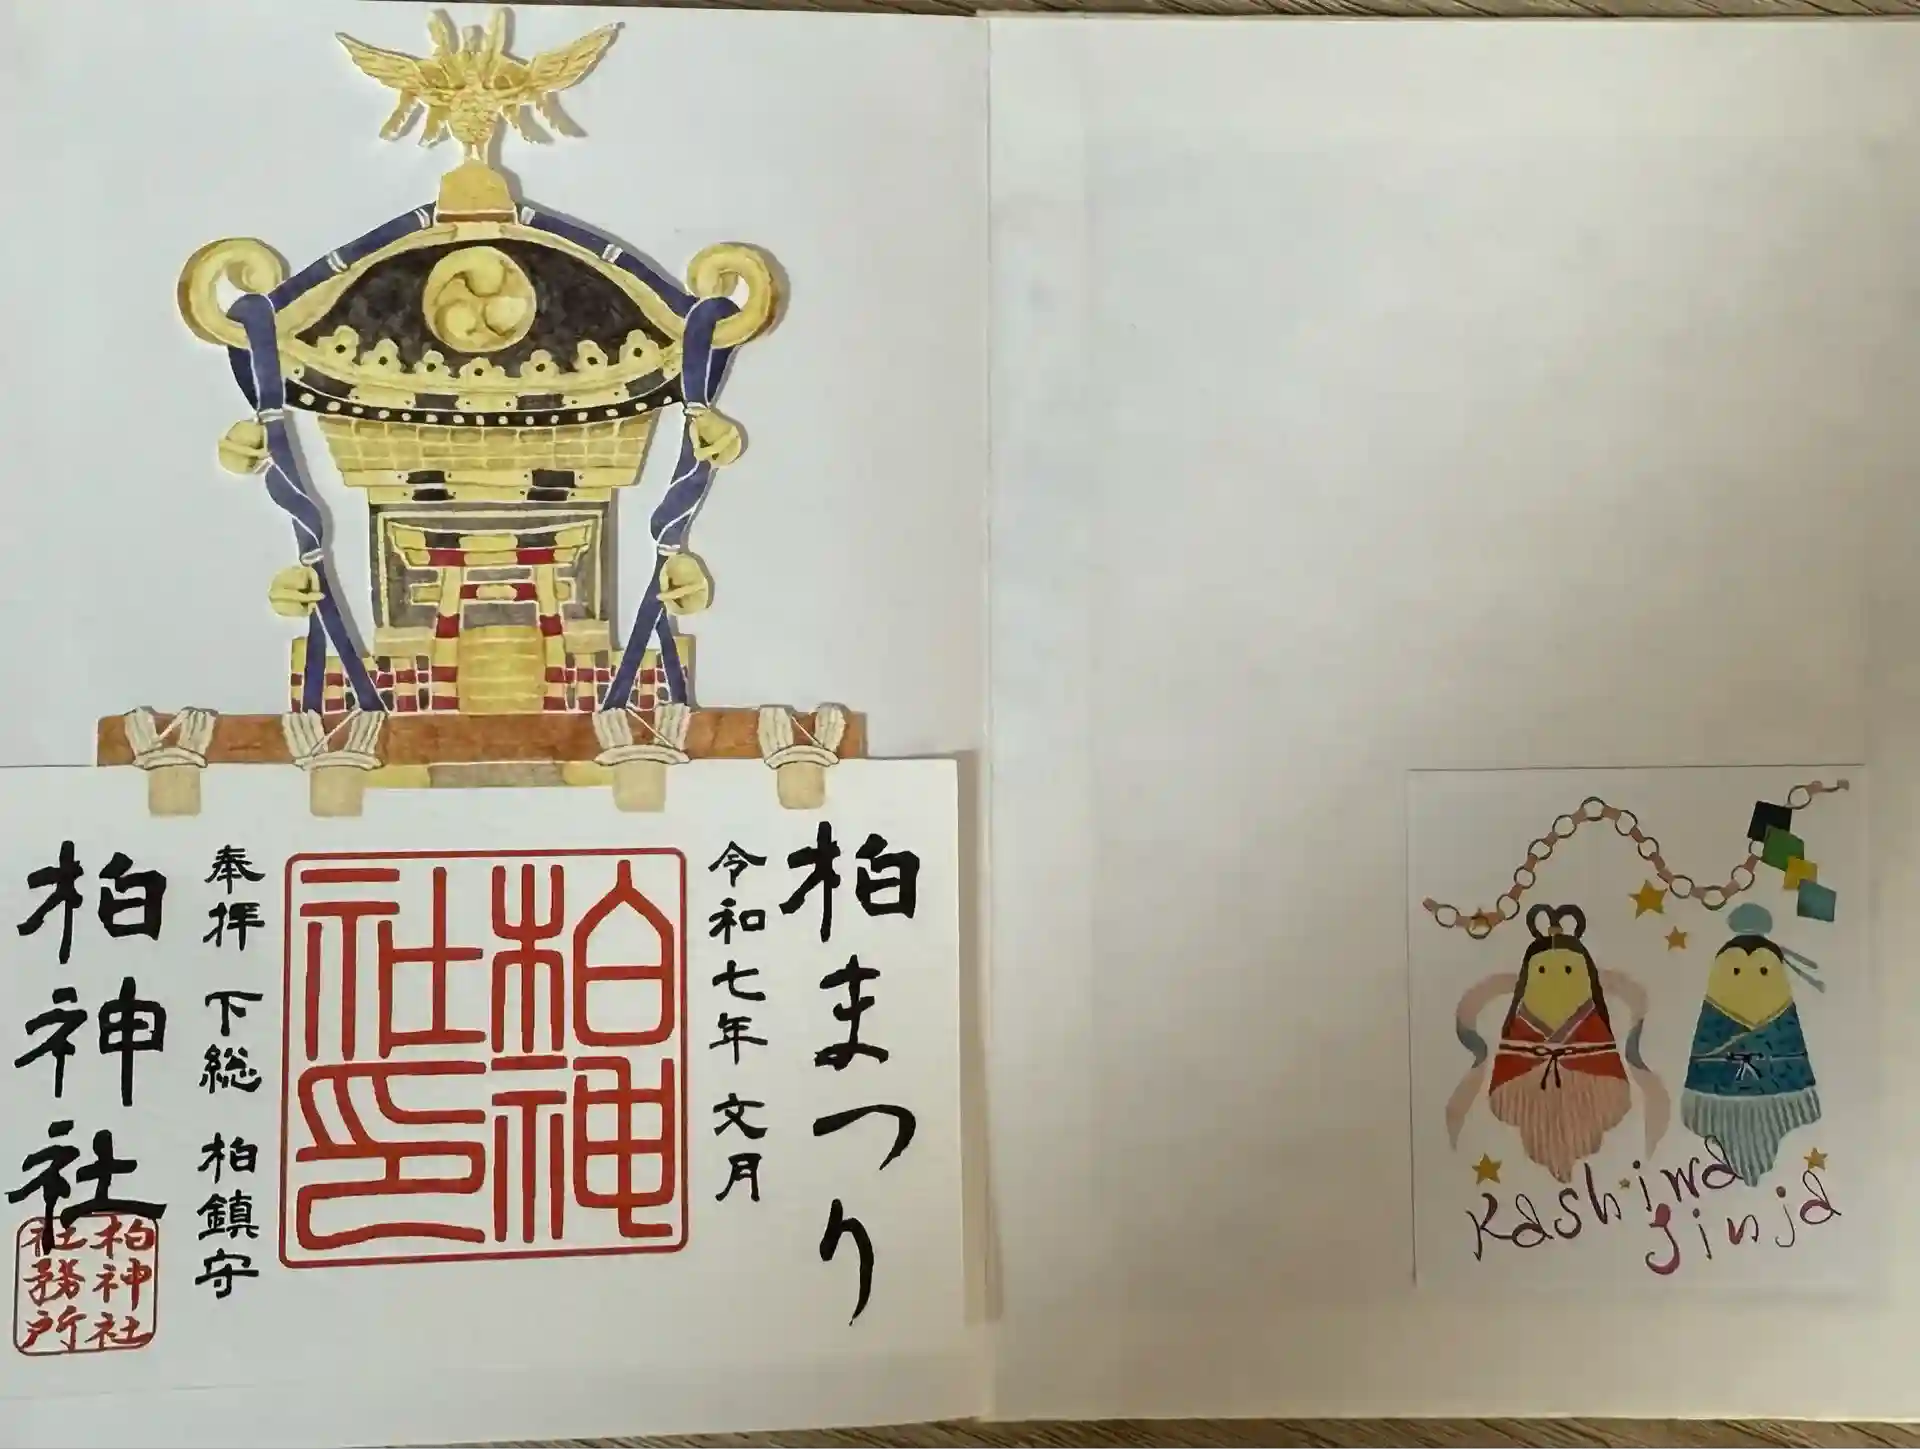 柏まつり
令和七年 文月
柏神
社印
奉拝 下総 柏鎮守
柏神社
柏神社
社務所
Kashiwa
Jinja